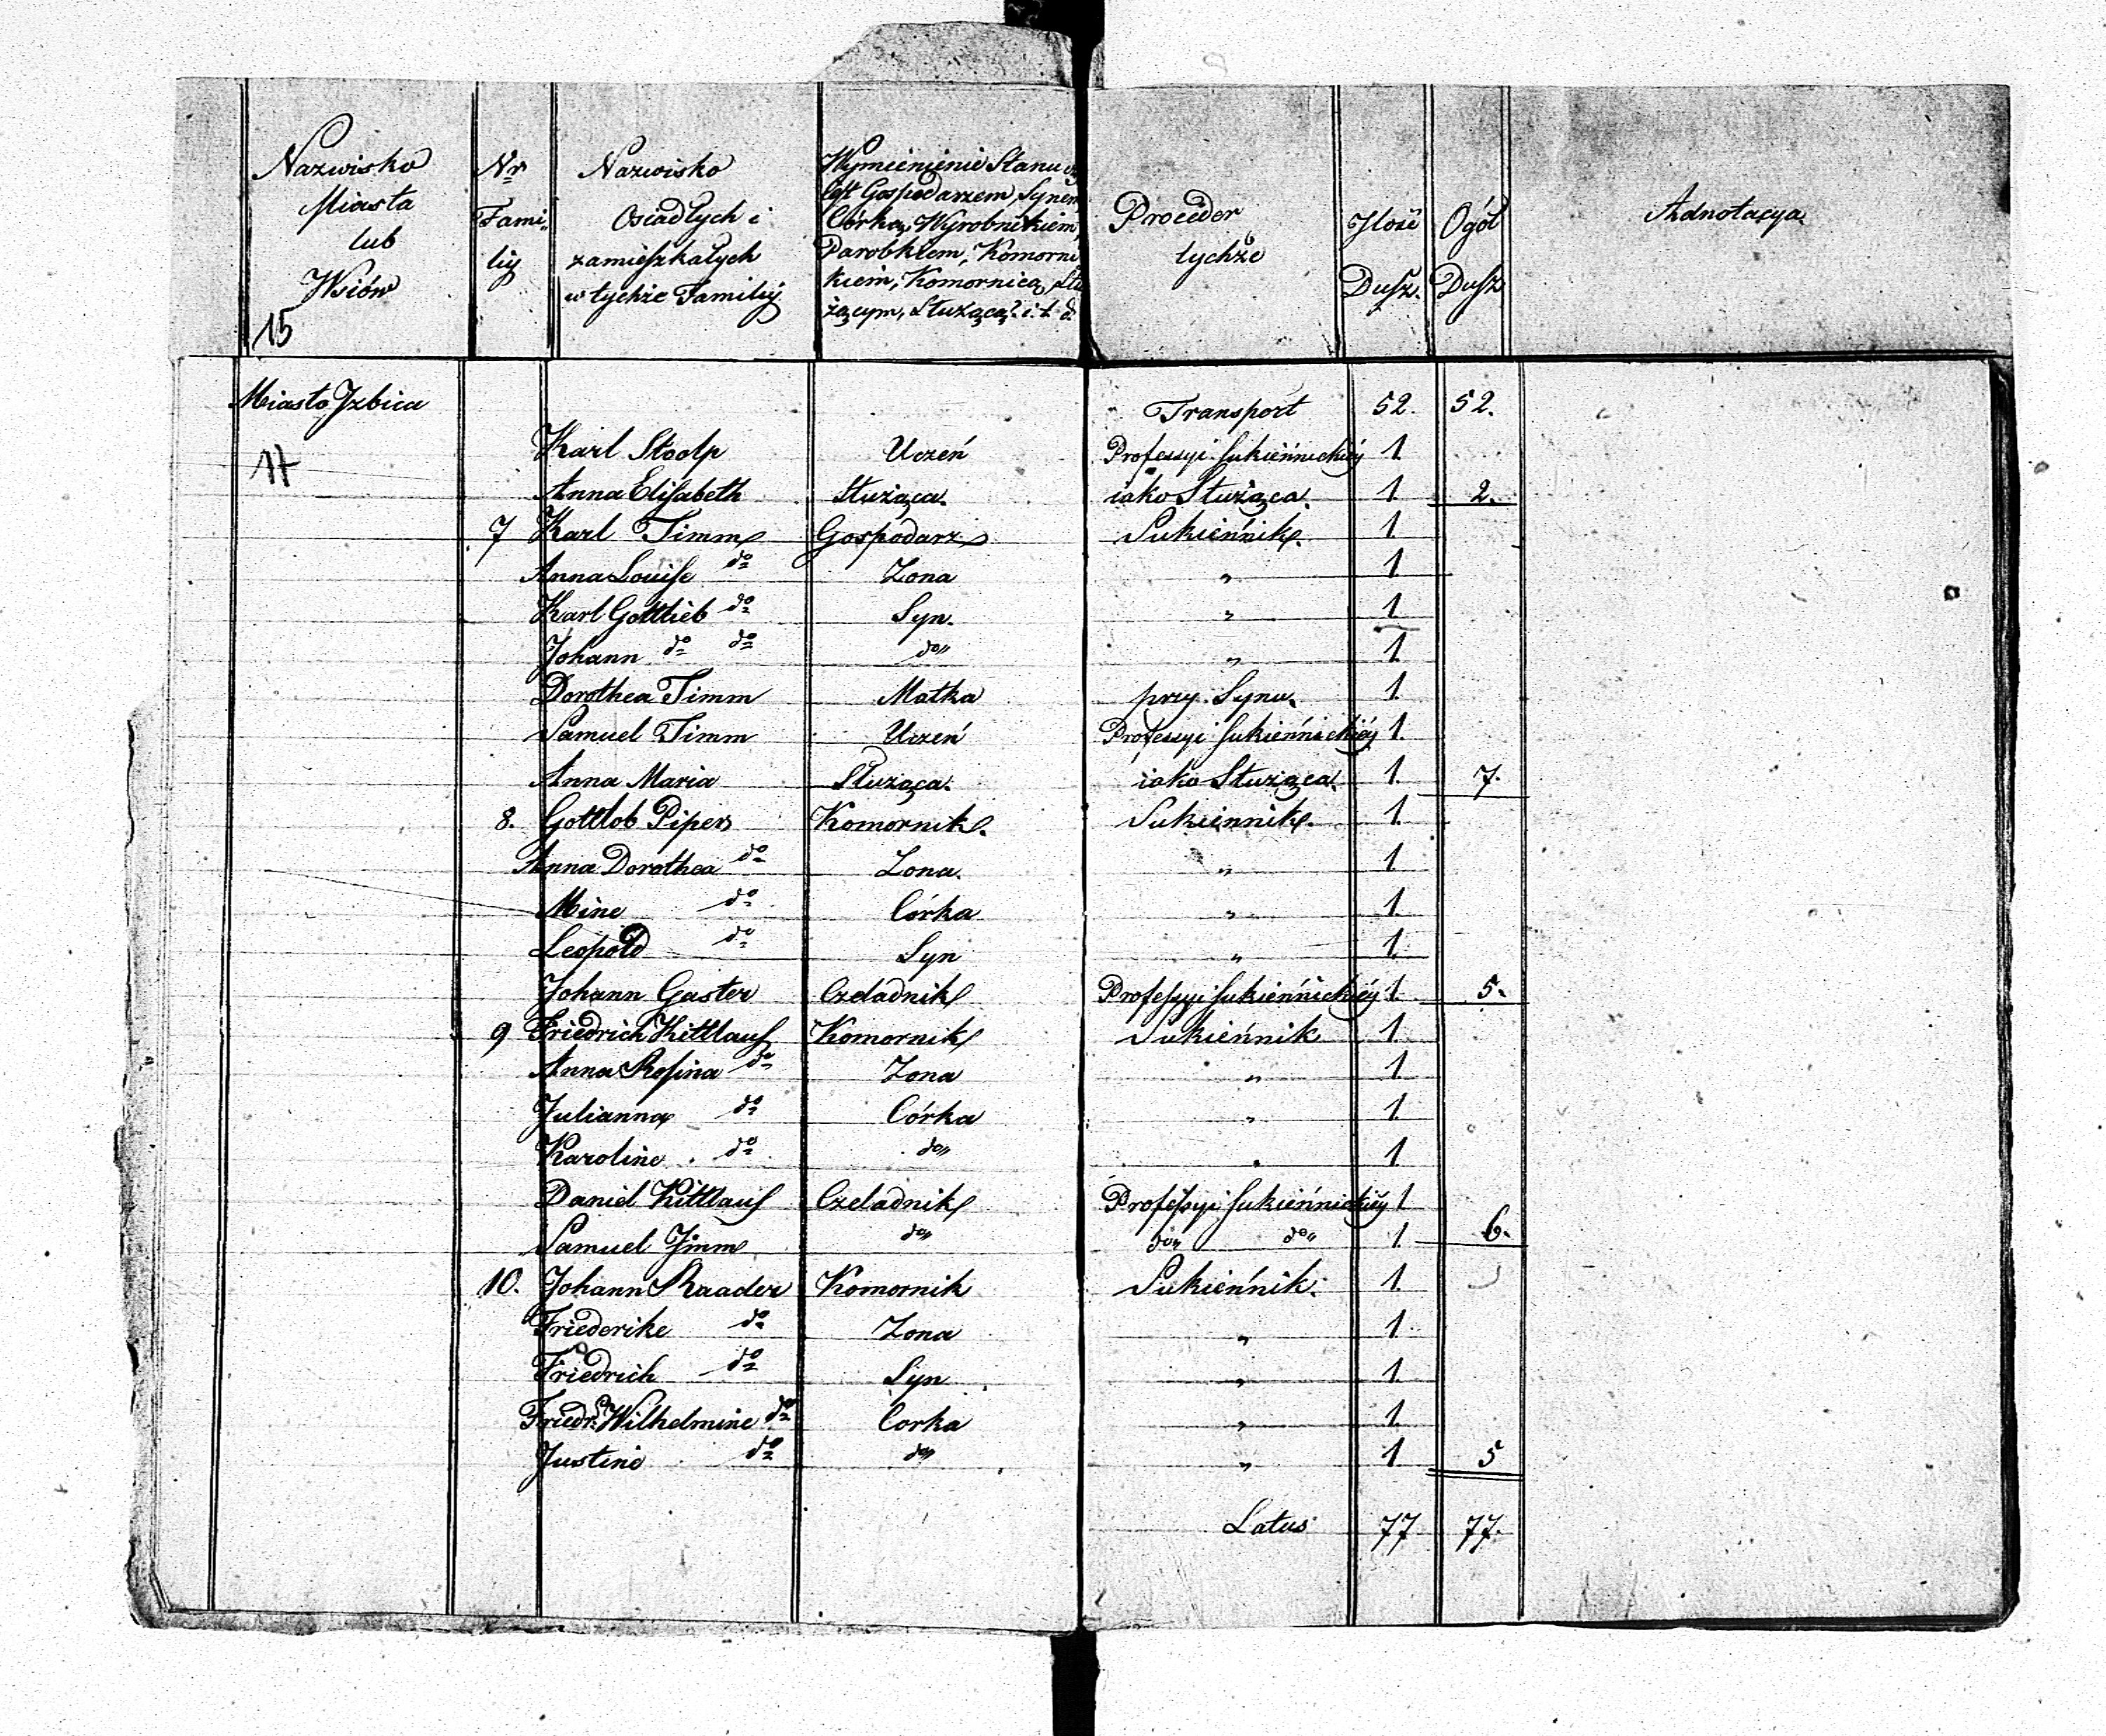 Nazwisko
Miasta
lub
Wsiów
15
Nr
Fami-
lij
Nazwisko
Osiadłych i
zamieszkałych
w tychże Familij
Wymienienie Stanu
Gospodarzem, Synem
Córką, Wyrobnikiem,
Parobkiem, Komorni
kiem, Komornicą, Słu
żącym, Służącą? i. t. d
Proceder
tychże
Ilość
Dusz.
Ogół
Dusz
Adnotacya
Miasto Jzbica Transport 52. 52.
17
Karl Stoolp Uczeń Professyi sukiennickiéy 1
Anna Elisabeth Służąca. iako Służąca. 1 2.
7 Karl Timm Gospodarz Sukiennik. 1
Anna Louise do Zona " 1
Karl Gottlieb do Syn. " 1
Johann do do do " 1.
Dorothea Timm Matka przy Synu. 1
Samuel Timm Uczeń Professyi sukiennickiéy 1.
Anna Maria Służąca. iako Służąca. 1. 7.
8. Gottlob Piper Komornik. Sukiennik. 1
Anna Dorothea do Zona. " 1
Mine do Córka " 1
Leopold do Syn " 1.
Johann Gaster Czeladnik Professyi sukiennickiéy 1 5.
9 Friedrich Kittlauf Komornik Sukiennik 1
Anna Rosina do Zona " 1
Julianna do Córka " 1
Karoline do do " 1
Daniel Kittlauf Czeladnik Professyi sukiennickiéy 1
Samuel Timm do do do 1. 6.
10. Johann Raader Komornik Sukiennik. 1.
Friederike do Zona " 1.
Friedrich do Syn " 1.
Friedr. Wilhelmine do Corka " 1.
Justine do do " 1 5
Latus 77 77.